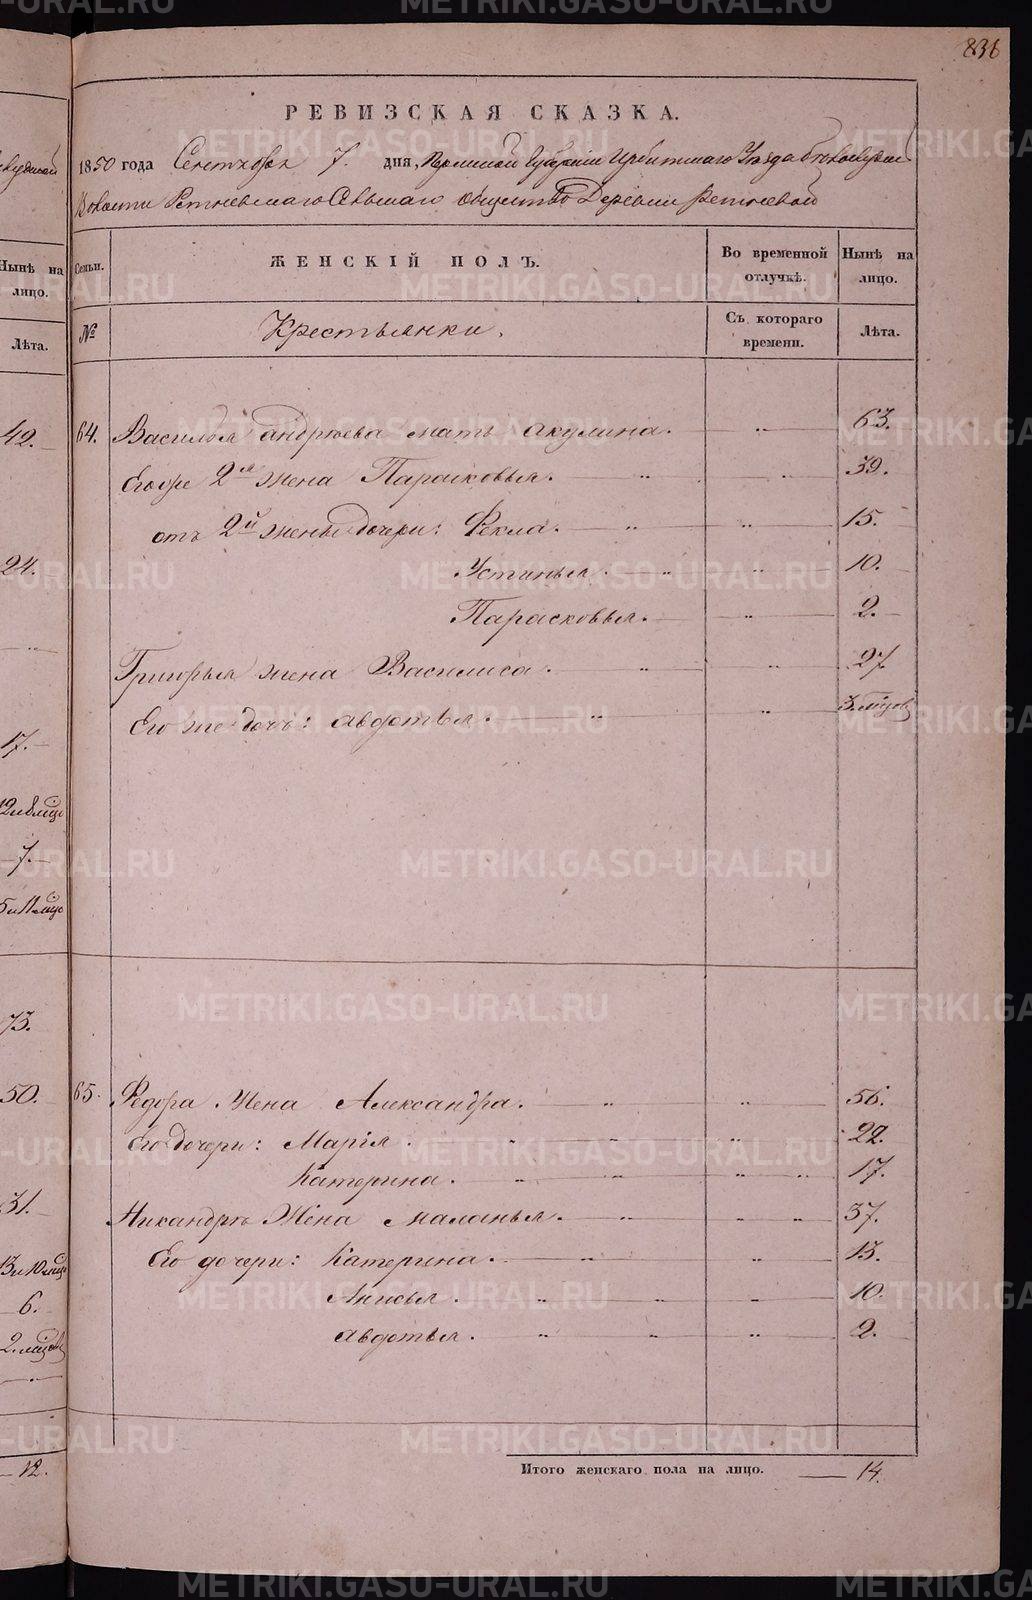 836
РЕВИЗСКАЯ СКАЗКА.
1850 года Сентября 7. дня, Пермской Губернии Ирбитскаго Уѣзда
Волости Ретневскаго Сельскаго общества Деревни Ретневой
Нынѣ на лицо.
Лѣта.
Семьи.
ЖЕНСКІЙ ПОЛЪ.
Во временной отлучкѣ.
Нынѣ на лицо.
№
Крестьянки.
Съ котораго времени.
Лѣта.
42.
64. Василья андреева мать акулина. 63.
Егоже 2я жена Парасковья. 39.
отъ 2й жены дочери: Фекла. 15.
24.
Устинья. 10.
Парасковья. 2.
Григорья жена Василиса. 27
Его же дочь: авдотья. 3. мѣсяц
17.
7.
73.
50.
65. Федора Жена Александра. 56.
Его дочери: Марія. 22.
Катерина. 17.
31.
Никандръ Жена маланья. 37.
Его дочери: Катерина. 13.
6.
Анисья. 10.
авдотья. 2.
12.
Итого женскаго пола на лицо. 14.
METRIKI.GASO-URAL.RU